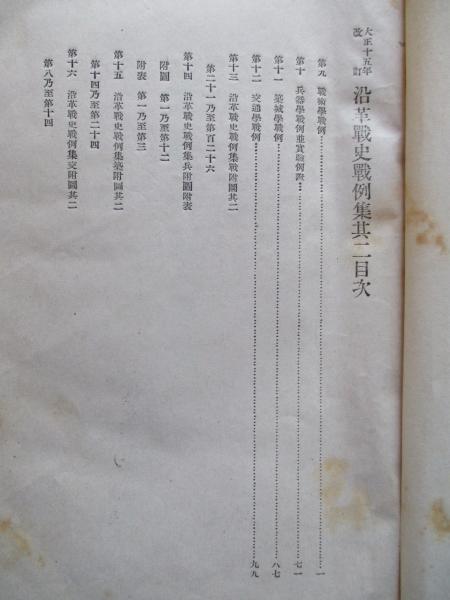 大正十五年改訂 沿革戰史戰例集其二目次
第九 戰術學戰例…………一
第十 兵器學戰例並實驗例證…………七一
第十一 築城學戰例…………八七
第十二 交通學戰例…………九九
第十三 沿革戰史戰例集戰附圖其二
第二十一乃至第百二十六
第十四 沿革戰史戰例集兵附圖附表
附圖 第一乃至第十二
附表 第一乃至第三
第十五 沿革戰史戰例集築附圖其二
第十四乃至第二十四
第十六 沿革戰史戰例集交附圖其二
第八乃至第十四